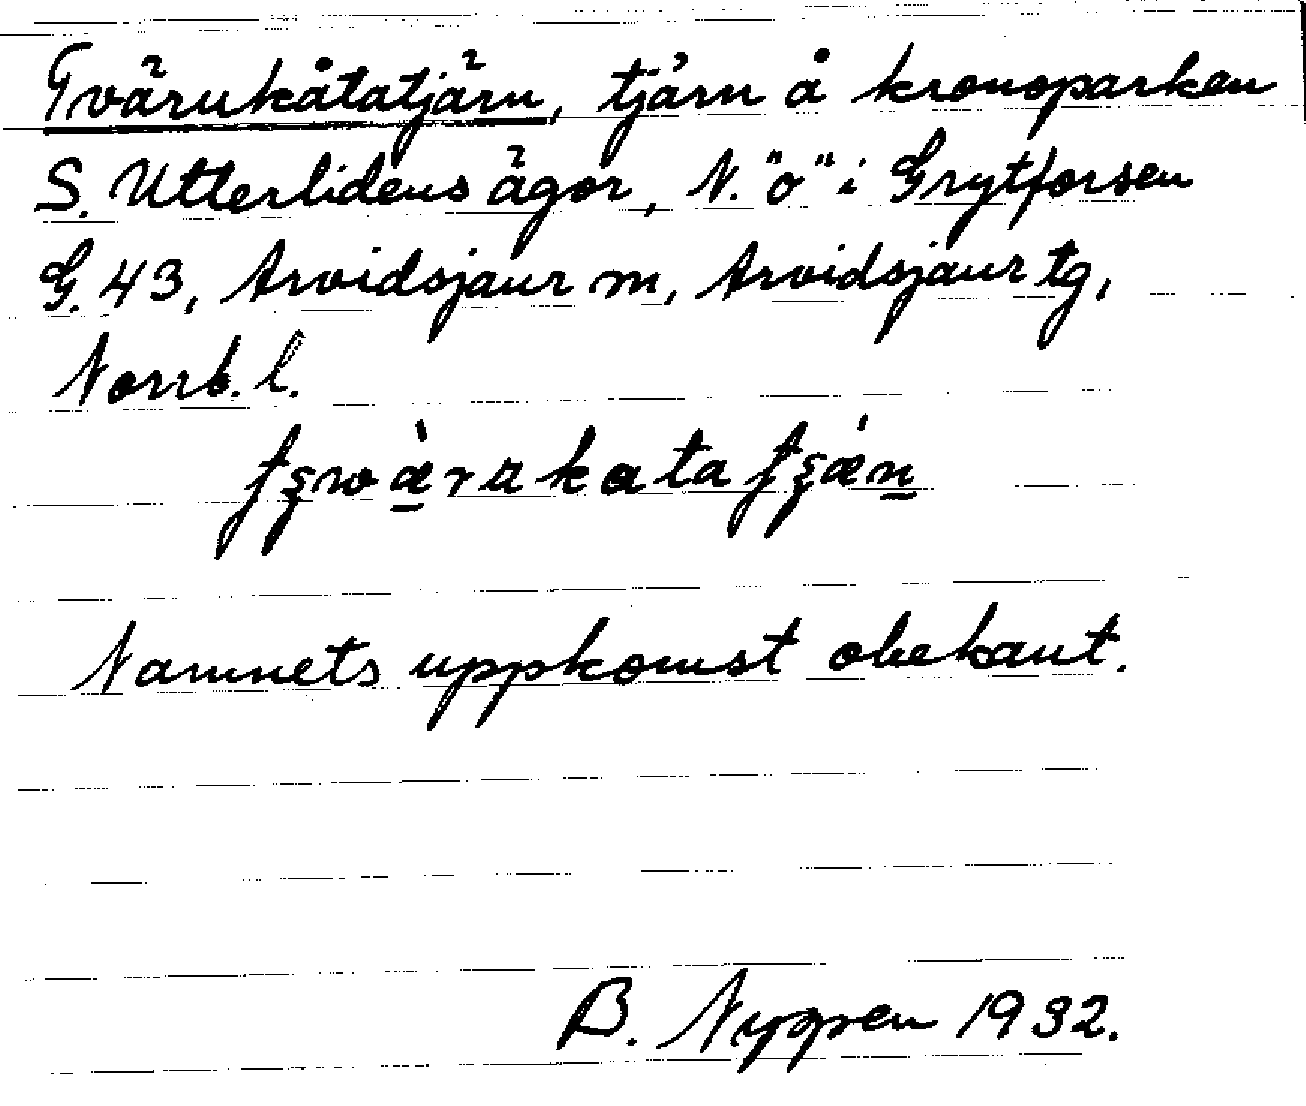 Tvärukåtatjärn, tjärn å kronoparken
S. Utterlidens ägor, N. "ö" i Grytforsen
G. 43, Arvidsjaur m, Arvidsjaur tg,
Norrb. l.
Namnets uppkomst obekant.
B. Nygren 1932.